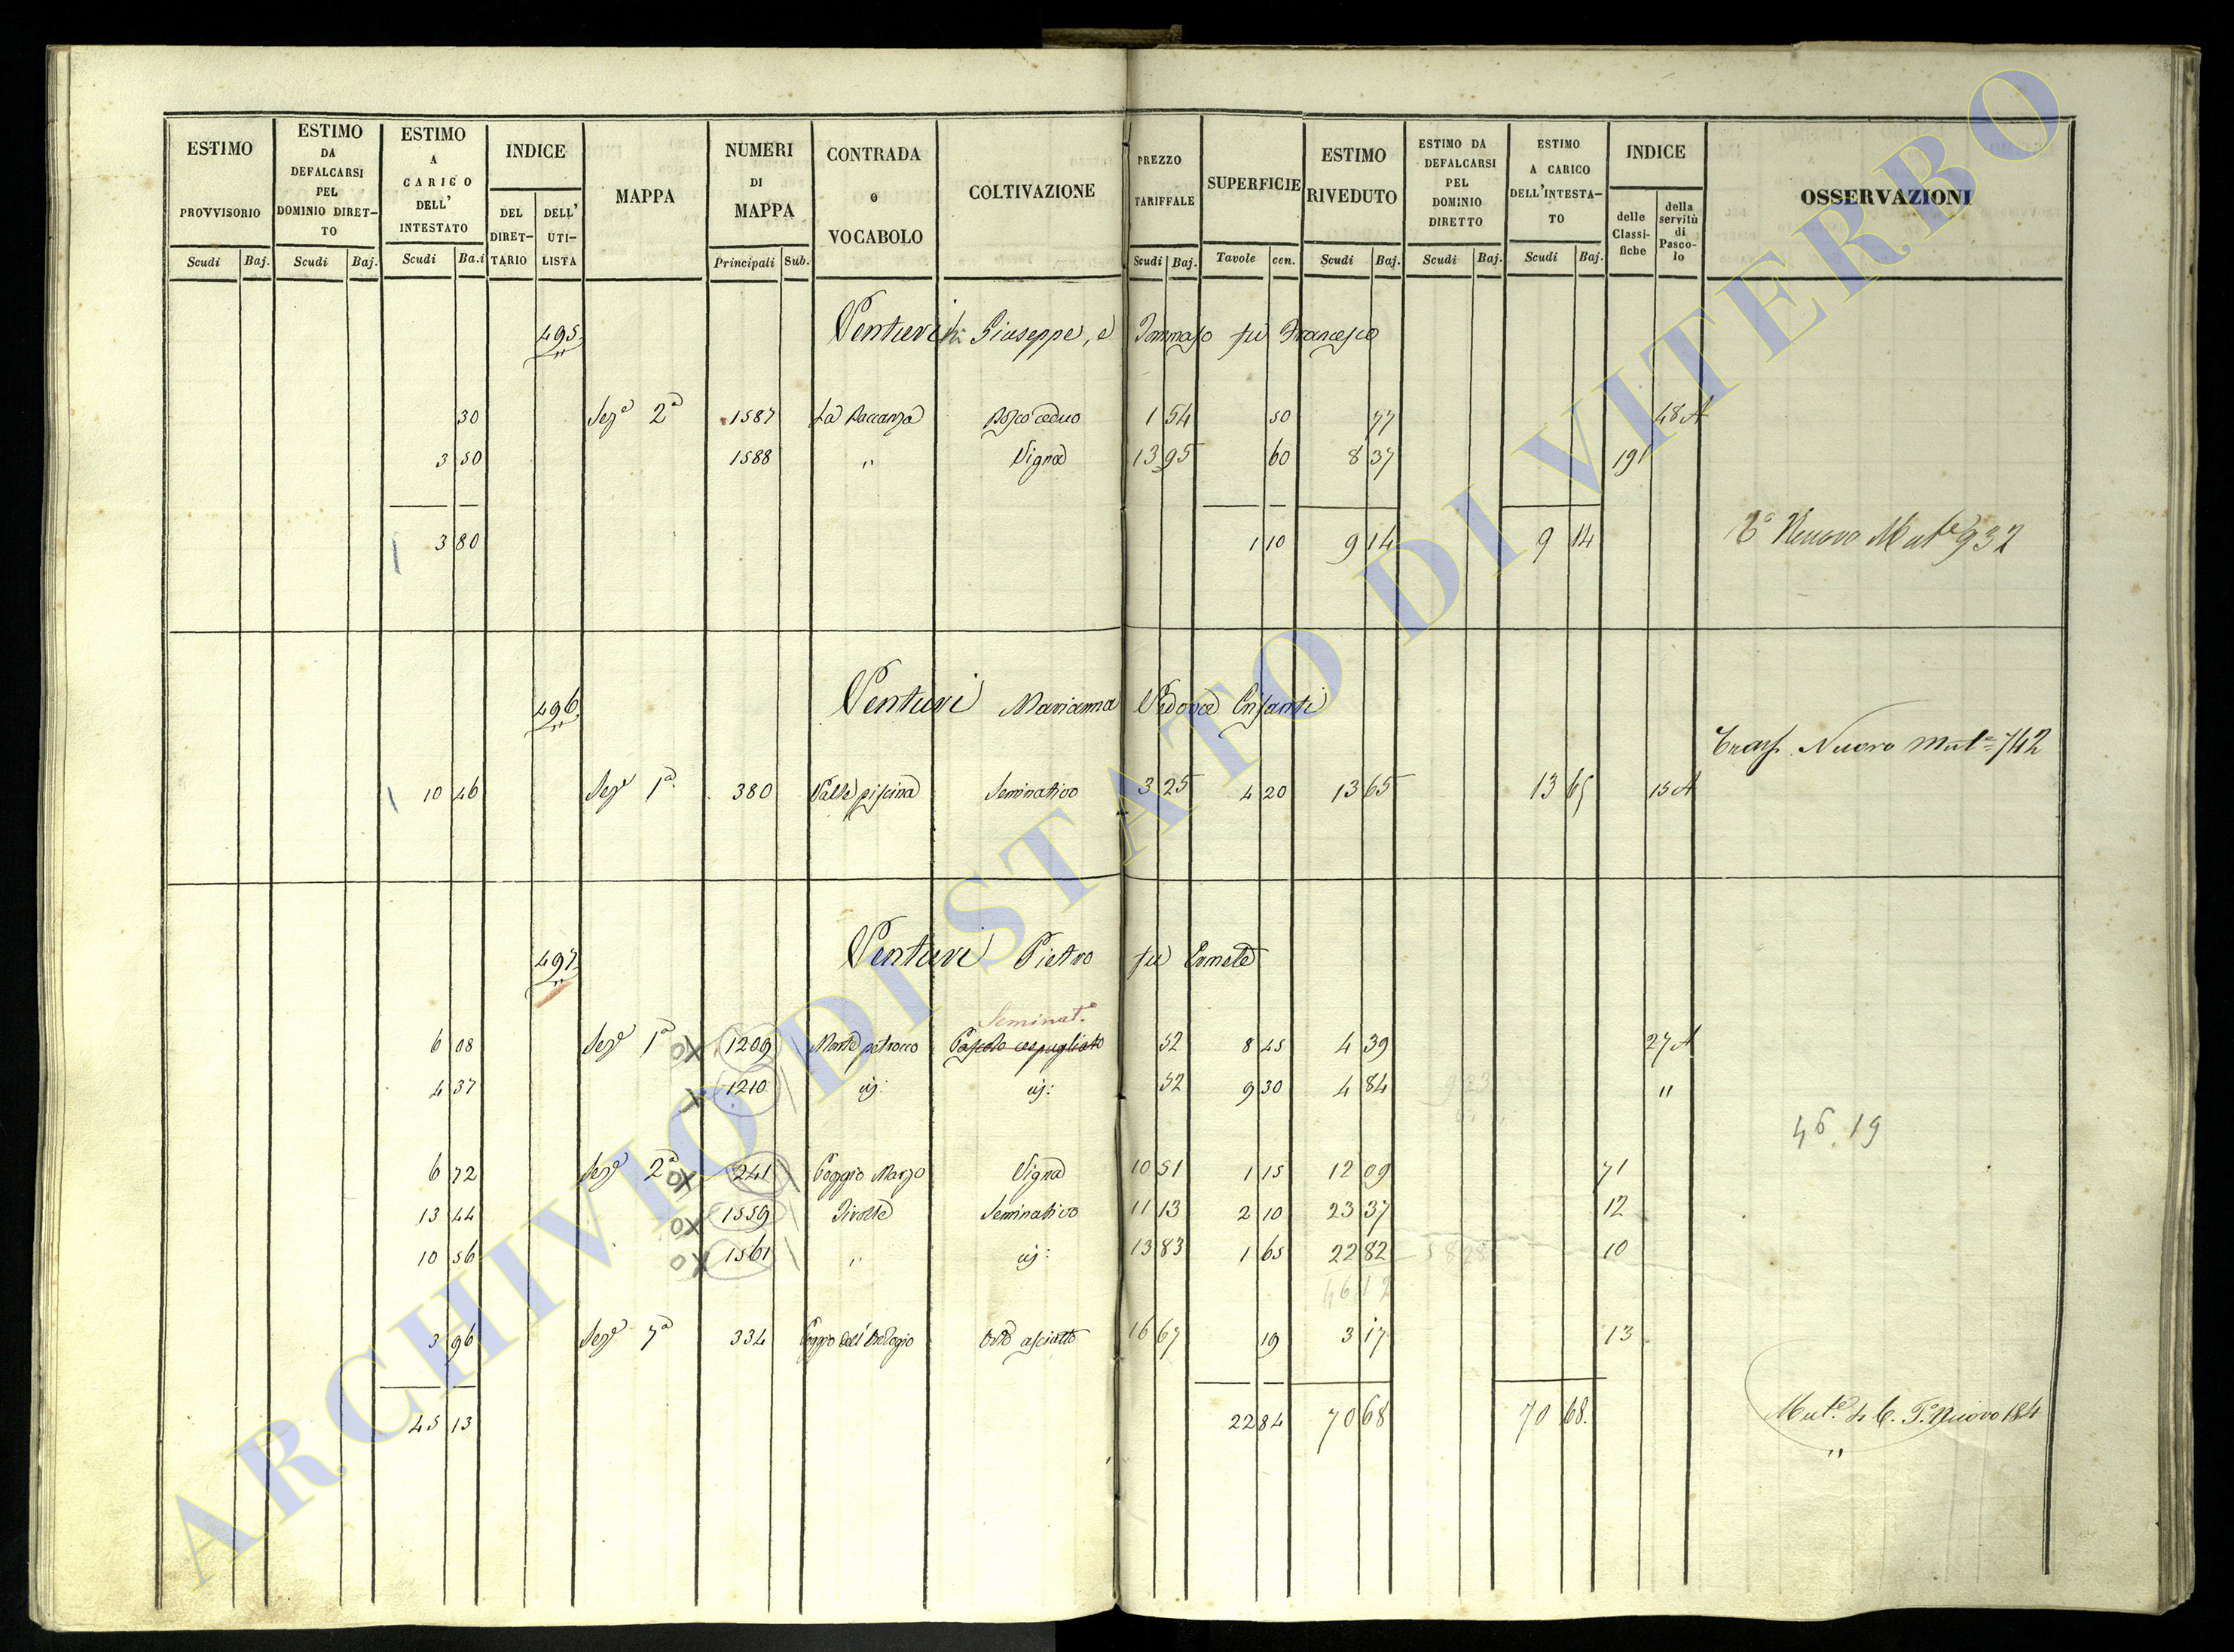 ESTIMO PROVVISORIO Scudi Baj.
ESTIMO DA DEFALCARSI PEL DOMINIO DIRETTO Scudi Baj.
ESTIMO A CARICO DELL' INTESTATO Scudi Ba.i
INDICE DEL DIRETTARIO DELL' UTILISTA
MAPPA
NUMERI DI MAPPA Principali Sub.
CONTRADA o VOCABOLO
COLTIVAZIONE
PREZZO TARIFFALE Scudi Baj.
SUPERFICIE Tavole cen.
ESTIMO RIVEDUTO Scudi Baj.
ESTIMO DA DEFALCARSI PEL DOMINIO DIRETTO Scudi Baj.
ESTIMO A CARICO DELL'INTESTATO Scudi Baj.
INDICE delle Classifiche della servitù di Pascolo
OSSERVAZIONI
495 Venturi Giuseppe, e Tommaso fu Francesco
30 Sez.e 2a 1587 La Baccanza Bosco ceduo 1 54 50 77 48 A
3 50 1588 " Vigna 13 95 60 8 37 191
3 80 1 10 9 14 9 14 Nuovo Mut.e 932
496 Venturi Marianna Vedova Infanti
Trasf. Nuovo Mut.e 742
10 46 Sez.e 1a 380 Valle piscina Seminativo 3 25 4 20 13 65 13 65 15 A
497 Venturi Pietro fu Ermete
Seminat.o
6 08 Sez.e 1a 1209 Monte petrocco Pascolo cespugliato 52 8 45 4 39 27 A
4 37 1210 52 9 30 4 84 "
46.19
6 72 Sez.e 2a 241 Poggio Marzo Vigna 10 51 1 15 12 09 71
13 44 1559 Pivolle Seminativo 11 13 2 10 23 37 12
10 56 1561 " 13 83 1 65 22 82 10
3 96 Sez.e 7a 334 Poggio dell'Orologio Orto asciutto 16 67 19 3 17 13
45 13 22 84 70 68 70 68.
Nuovo 184
"
ARCHIVIO DI STATO DI VITERBO